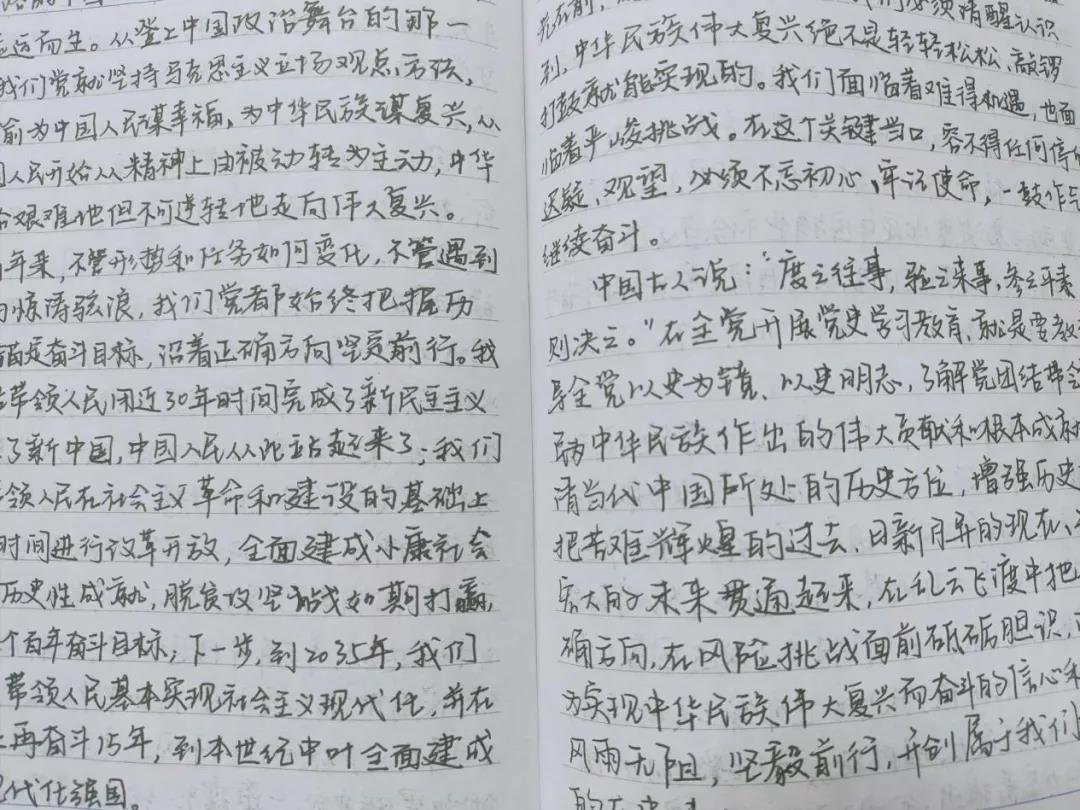 应运而生。从登上中国政治舞台的那一
我们党就坚持马克思主义立场观点方法,
前为中国人民谋幸福,为中华民族谋复兴,从
国人民开始从精神上由被动转为主动,中华
艰难地但不可逆转地走向伟大复兴。
年来,不管形势和任务如何变化,不管遇到
惊涛骇浪,我们党都始终把握历
锚定奋斗目标,沿着正确方向坚定前行。我
带领人民用近30年时间完成了新民主主义
了新中国,中国人民从此站起来了;我们
领人民在社会主义革命和建设的基础上
时间进行改革开放,全面建成小康社会
历史性成就,脱贫攻坚战如期打赢,
个百年奋斗目标;下一步,到2035年,我们
带领人民基本实现社会主义现代化,并在
再奋斗15年,到本世纪中叶全面建成
现代化强国。
先在前, 们必须清醒认识
到,中华民族伟大复兴绝不是轻轻松松、敲锣
打鼓就能实现的。我们面临着难得机遇,也面
临着严峻挑战。在这个关键当口,容不得任何停
迟疑、观望,必须不忘初心、牢记使命,一鼓作气
继续奋斗。
中国古人说:“度之往事,验之来事,参之平素
则决之。”在全党开展党史学习教育,就是要教
导全党以史为镜、以史明志,了解党团结带领
为中华民族作出的伟大贡献和根本成就
清当代中国所处的历史方位,增强历史
把苦难辉煌的过去、日新月异的现在、
宏大的未来贯通起来,在乱云飞渡中把
确方向,在风险挑战面前砥砺胆识,
为实现中华民族伟大复兴而奋斗的信心和
风雨无阻,坚毅前行,开创属于我们
的